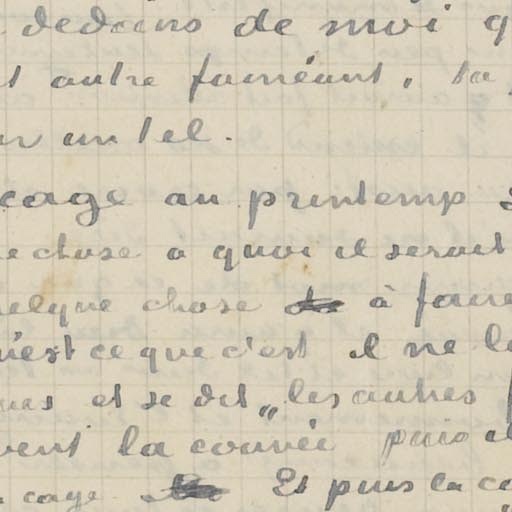 dedans de moi q
t autre fainéant, ta
un tel.
cage au printemps
e chose a quoi il serait
uelque chose à faire
u'est ce que c'est il ne le
ues et se dit „les autres
vent la couvée puis il
cage Et puis la ca